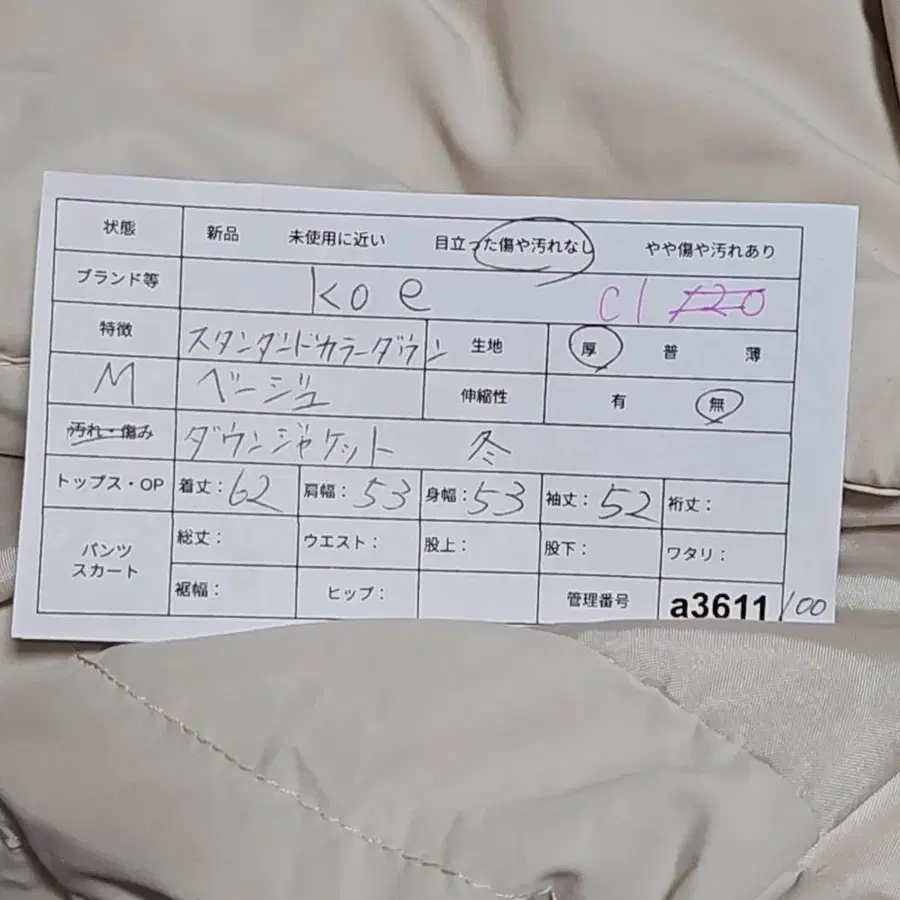 状態 新品 未使用に近い 目立った傷や汚れなし やや傷や汚れあり
ブランド等 koe c1 720
特徴 スタンダードカラーダウン 生地 厚 普 薄
M ベージュ 伸縮性 有 無
汚れ・傷み ダウンジャケット 冬
トップス・OP 着丈:62 肩幅:53 身幅:53 袖丈:52 裄丈:
パンツ スカート 総丈: ウエスト: 股上: 股下: ワタリ:
裾幅: ヒップ: 管理番号 a3611 /00